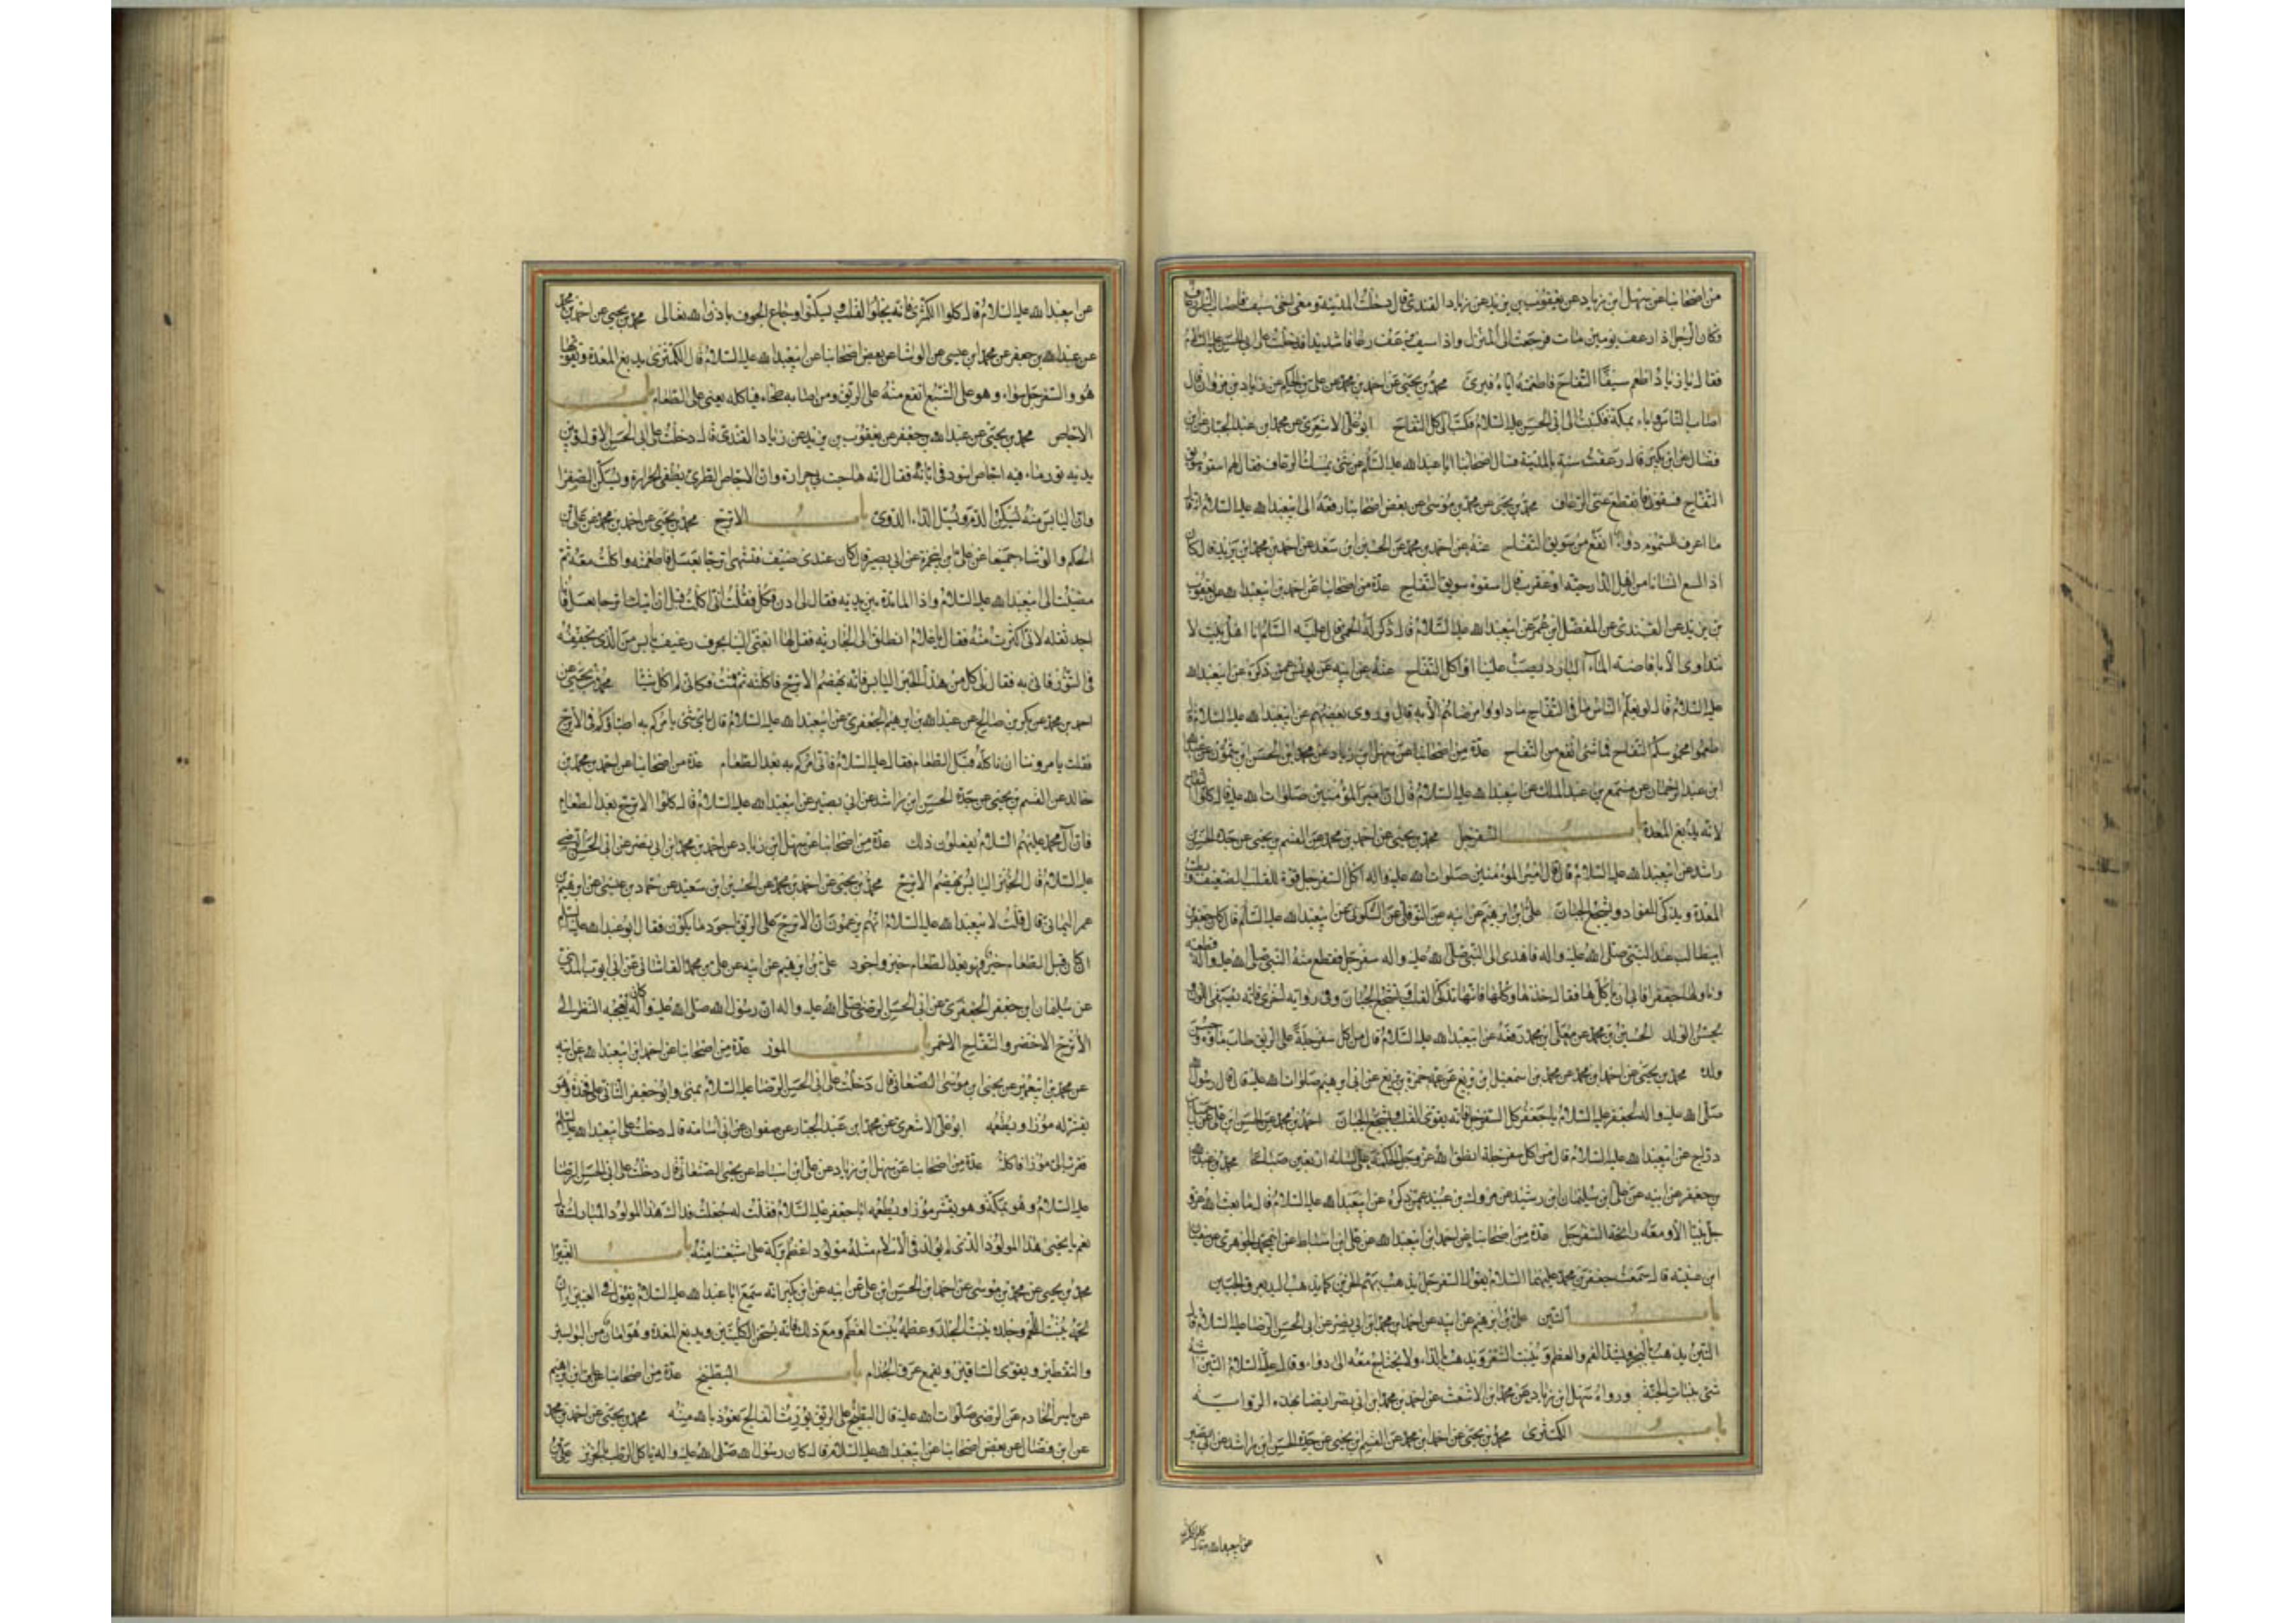 من اصحابنا عن سهل بن زياد عن يعقوب بن يزيد عن زياد القندي قال دخلت المدينة ومعي اخي سيف فاصاب الناس رعاف
فكان الرجل اذا رعف يومين مات فرجعت الى المنزل واذا سيف يرعف رعافا شديدا فدخلت على ابي الحسن عليه السلام
فقال يا زياد اطعم سيفا التفاح فاطعمته اياه فبرئ محمد بن يحيى عن احمد بن محمد عن علي بن الحكم عن زياد بن مروان قال
اصاب الناس وباء بمكة فكتبت الى ابي الحسن عليه السلام فكتب الي كل التفاح ابو علي الاشعري عن محمد بن عبد الجبار عن ابن
فضال عن ابن بكير قال رعفت سنة بالمدينة فسال اصحابنا ابا عبد الله عليه السلام عن شئ يمسك الرعاف فقال لهم اسقوه سويق
التفاح فسقوني فانقطع عني الرعاف محمد بن يحيى عن محمد بن موسى عن بعض اصحابنا رفعه الى ابيعبد الله عليه السلام قال
ما اعرف للسموم دواء انفع من سويق التفاح عنه عن احمد بن محمد عن الحسين ابن سعيد عن احمد بن محمد ابن يزيد قال كان
اذا لسع انسانا من اهل الدار حية او عقرب قال اسقوه سويق التفاح عدة من اصحابنا عن احمد بن ابيعبد الله عن يعقوب
بن يزيد عن القندي عن المفضل ابن عمر عن ابيعبد الله عليه السلام قال ذكر له الحمى قال عليه السلام انا اهل بيت لا
نتداوى الا بافاضة الماء البارد يصب علينا واكل التفاح عنه عن ابيه عن يونس عمن ذكره عن ابيعبد الله
عليه السلام قال لو يعلم الناس ما في التفاح ما داووا مرضاهم الا به قال وروى بعضهم عن ابيعبد الله عليه السلام قال
اطعموا محموميكم التفاح فما شئ انفع من التفاح عدة من اصحابنا عن سهل ابن زياد عن محمد ابن الحسن ابن شمون عن عبد الله
ابن عبد الرحمان عن مسمع بن عبد الملك عن ابيعبد الله عليه السلام قال قال امير المؤمنين صلوات الله عليه قال كلوا التفاح
لانه يدبغ المعدة باب السفرجل محمد بن يحيى عن احمد بن محمد عن القسم بن يحيى عن جده الحسن بن
راشد عن ابيعبد الله عليه السلام قال قال امير المؤمنين صلوات الله عليه واله اكل السفرجل قوة للقلب الضعيف ويطيب
المعدة ويذكي الفواد ويشجع الجبان علي ابن ابرهيم عن ابيه عن النوفلي عن السكوني عن ابيعبد الله عليه السلام قال كان جعفر بن
ابيطالب عند النبي صلى الله عليه واله فاهدى الى النبي صلى الله عليه واله سفرجل فقطع منه النبي صلى الله عليه واله قطعة
وناولها جعفرا فابى ان ياكلها فقال خذها وكلها فانها تذكي القلب وتشجع الجبان وفي رواية اخرى فانه يصفي اللون
يحسن الولد الحسين بن محمد عن معلى ابن محمد رفعه عن ابيعبد الله عليه السلام قال من اكل سفرجلة على الريق طاب ماؤه وحسن
ولده محمد بن يحيى عن احمد ابن محمد عن محمد بن اسمعيل ابن بزيع عن عمه حمزة بن بزيع عن ابي ابرهيم صلوات الله عليه قال قال رسول الله
صلى الله عليه واله لجعفر عليه السلام يا جعفر كل السفرجل فانه يقوي القلب ويشجع الجبان احمد بن محمد عن الحسن ابن علي عن جميل بن
دراج عن ابيعبد الله عليه السلام قال من اكل سفرجلة انطق الله عز وجل الحكمة على لسانه اربعين صباحا محمد بن عبد الله
بن جعفر عن ابيه عن علي ابن سليمان ابن رشيد عن مروك بن عبيد عمن ذكره عن ابيعبد الله عليه السلام قال ما بعث الله عز و
جل نبيا الا ومعه رائحة السفرجل عدة من اصحابنا عن احمد ابن ابيعبد الله عن علي ابن اسباط عن ابي محمد الجوهري عن سفيان
ابن عيينة قال سمعت جعفر بن محمد عليهما السلام يقول السفرجل يذهب بهم الحزين كما يذهب اليد بعرق الجبين
باب التين علي بن ابرهيم عن ابيه عن احمد ابن محمد ابن ابي نصر عن ابي الحسن الرضا عليه السلام قال
التين يذهب بالبخر ويشد الفم والعظم وينبت الشعر ويذهب بالداء ولا يحتاج معه الى دواء وقال عليه السلام التين اشبه
شئ بنبات الجنة ورواه سهل ابن زياد عن محمد ابن الاشعث عن احمد بن محمد ابن ابي نصر ايضا بهذه الرواية
باب الكمثرى محمد بن يحيى عن احمد ابن محمد عن القسم ابن يحيى عن جده الحسن ابن راشد عن ابي بصير
عن ابيعبد الله قال كلوا الكمثرى
عن ابيعبد الله عليه السلام قال كلوا الكمثرى فانه يجلوا القلب ويسكن اوجاع الجوف باذن الله تعالى محمد بن يحيى عن احمد بن محمد
عن عبد الله بن جعفر عن محمد ابن عيسى عن الوشا عن بعض اصحابنا عن ابيعبد الله عليه السلام قال الكمثرى يدبغ المعدة ويقويها
هو والسفرجل سواء وهو على الشبع انفع منه على الريق ومن اصابه طخاء فياكله يعني على الطعام باب
الاجاص محمد بن يحيى عن عبد الله بن جعفر عن يعقوب بن يزيد عن زياد القندي قال دخلت على ابي الحسن الاول وبين
يديه تور ماء فيه اجاص اسود في ابانه فقال انه هاجت بي حرارة وان الاجاص الطري يطفي الحرارة ويسكن الصفرا
وان اليابس منه يسكن الدم ويسل الداء الدوي باب الاترج محمد بن يحيى عن احمد بن محمد عن علي بن
الحكم والوشاء جميعا عن علي بن ابي حمزة عن ابي بصير قال كان عندي ضيف فتشهى اترجا بعسل فاطعمته واكلت معه ثم
مضيت الى ابيعبد الله عليه السلام واذا المائدة بين يديه فقال لي ادن فكل فقلت اني اكلت قبل ان اتيك اترجا بعسل وانا
اجد ثقله لاني اكثرت منه فقال يا غلام انطلق الى الجارية فقل لها ابعثي الينا بحرف رغيف يابس من الذي تجففه
في التنور فاتى به فقال لي كل من هذا الخبز اليابس فانه يهضم الاترج فاكلته ثم قمت فكاني لم اكل شيئا محمد بن يحيى عن
احمد بن محمد عن بكر بن صالح عن عبد الله بن ابرهيم الجعفري عن ابيعبد الله عليه السلام قال باي شئ يامركم به اطباؤكم في الاترج
فقلت يامروننا ان ناكله قبل الطعام فقال عليه السلام فاني امركم به بعد الطعام عدة من اصحابنا عن احمد بن محمد بن
خالد عن القسم بن يحيى عن جده الحسن ابن راشد عن ابي بصير عن ابيعبد الله عليه السلام قال كلوا الاترج بعد الطعام
فان ال محمد عليهم السلام يفعلون ذلك عدة من اصحابنا عن سهل ابن زياد عن احمد بن محمد ابن ابي نصر عن ابي الحسن الرضا
عليه السلام قال الخبز اليابس يهضم الاترج محمد بن يحيى عن احمد بن محمد عن الحسين ابن سعيد عن حماد بن عيسى عن ابرهيم بن
عمر اليماني قال قلت لابيعبد الله عليه السلام انهم يزعمون ان الاترج على الريق اجود ما يكون فقال ابو عبد الله عليه السلام
ان كان قبل الطعام خير فهو بعد الطعام خير واجود علي بن ابرهيم عن ابيه عن علي بن محمد القاشاني عن ابي ايوب المديني
عن سليمان ابن جعفر الجعفري عن ابي الحسن الرضي صلى الله عليه واله ان رسول الله صلى الله عليه واله كان يعجبه النظر الى
الاترج الاخضر والتفاح الاحمر باب الموز عدة من اصحابنا عن احمد ابن ابيعبد الله عن ابيه
عن محمد بن ابيعمير عن يحيى ابن موسى الصنعاني قال دخلت على ابي الحسن الرضا عليه السلام بمنى وابو جعفر الثاني على فخذه وهو
يقشر له موزا ويطعمه ابو علي الاشعري عن محمد ابن عبد الجبار عن صفوان عن ابي اسامة قال دخلت على ابيعبد الله عليه السلام
فقرب الي موزا فاكلت عدة من اصحابنا عن سهل ابن زياد عن علي ابن اسباط عن يحيى الصنعاني قال دخلت على ابي الحسن الرضا
عليه السلام وهو بمكة وهو يقشر موزا ويطعمه ابا جعفر عليه السلام فقلت له جعلت فداك هذا المولود المبارك قال
نعم يا يحيى هذا المولود الذي لم يولد في الاسلام مثله مولود اعظم بركة على شيعتنا منه باب الغبيرا
محمد بن يحيى عن محمد بن موسى عن احمد ابن الحسن ابن علي عن ابيه عن ابن بكير انه سمع ابا عبد الله عليه السلام يقول في الغبيرا ان
لحمه ينبت اللحم وجلده ينبت الجلد وعظمه ينبت العظم ومع ذلك فانه يسخن الكليتين ويدبغ المعدة وهو امان من البواسير
والتقطير ويقوي الساقين ويقمع عرق الجذام باب البطيخ عدة من اصحابنا عن علي ابن ابرهيم
عن ياسر الخادم عن الرضي صلوات الله عليه قال البطيخ على الريق يورث الفالج نعوذ بالله منه محمد بن يحيى عن احمد بن محمد
عن ابن فضال عن بعض اصحابنا عن ابيعبد الله عليه السلام قال كان رسول الله صلى الله عليه واله ياكل الرطب بالخربز علي بن